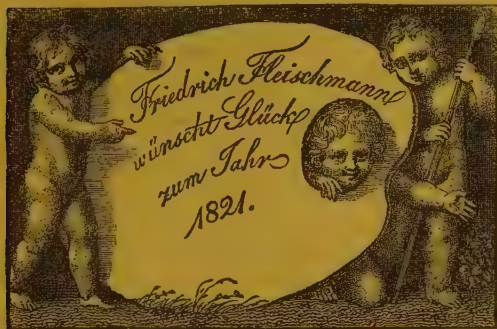 Friedrich Fleischmann
wünscht Glück
zum Jahr
1821.